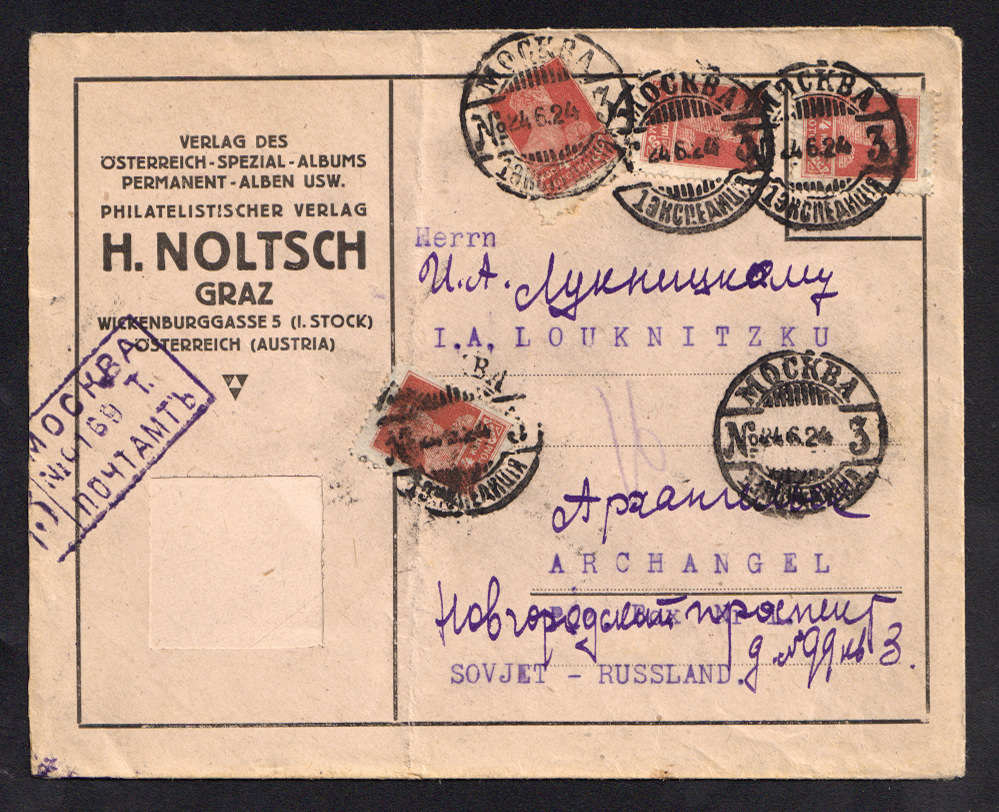 VERLAG DES
ÖSTERREICH-SPEZIAL-ALBUMS
PERMANENT-ALBEN USW.
PHILATELISTISCHER VERLAG
H. NOLTSCH
GRAZ
WICKENBURGGASSE 5 (I. STOCK)
ÖSTERREICH (AUSTRIA)
МОСКВА
169 Т.
ПОЧТАМТЪ
МОСКВА
№ 24.6.24 3
МОСКВА
24.6.24 3
1 ЭКСПЕДИЦІЯ
МОСКВА
24.6.24 3
1 ЭКСПЕДИЦІЯ
Herrn
И. А. Лукницкому
I.A. LOUKNITZKU
24.6.24 3
1 ЭКСПЕДИЦІЯ
МОСКВА
№ 24.6.24 3
16
Архангельск
ARCHANGEL
Новгородский проспект
д № 99 кв 3.
SOVJET - RUSSLAND.